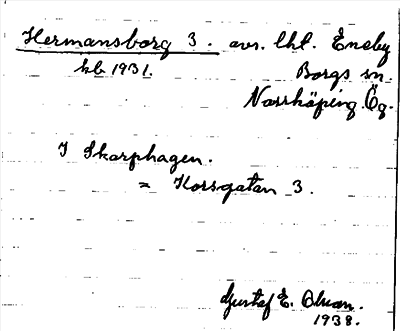 Hermansborg 3. avs. lht. Eneby
kb 1931. Borgs sn.
Norrköping. Ög.
I Skarphagen.
= Korsgatan 3.
Gustaf E. Olson.
1938.